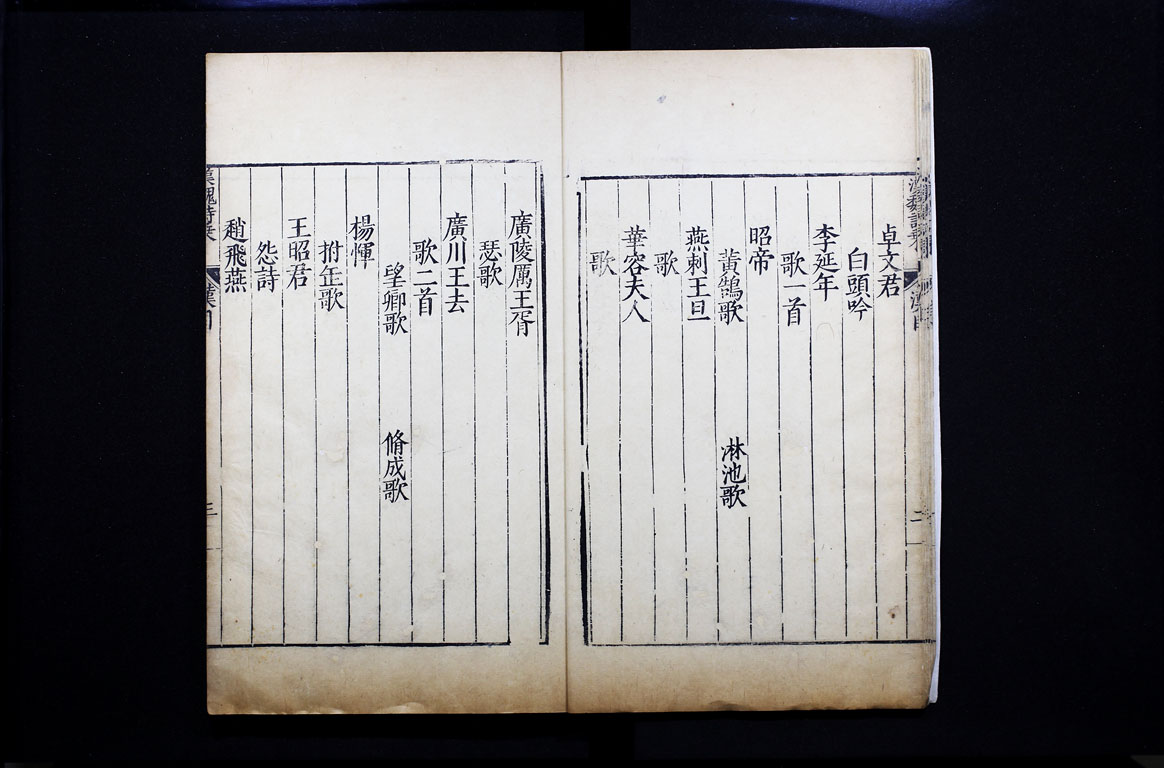 卓文君
白頭吟
李延年
歌一首
昭帝
黃鵠歌 淋池歌
燕剌王旦
歌
華容夫人
歌
廣陵厲王胥
瑟歌
廣川王去
歌二首
望卿歌 脩成歌
楊惲
拊缶歌
王昭君
怨詩
趙飛燕
漢魏詩乗
漢目
三
二